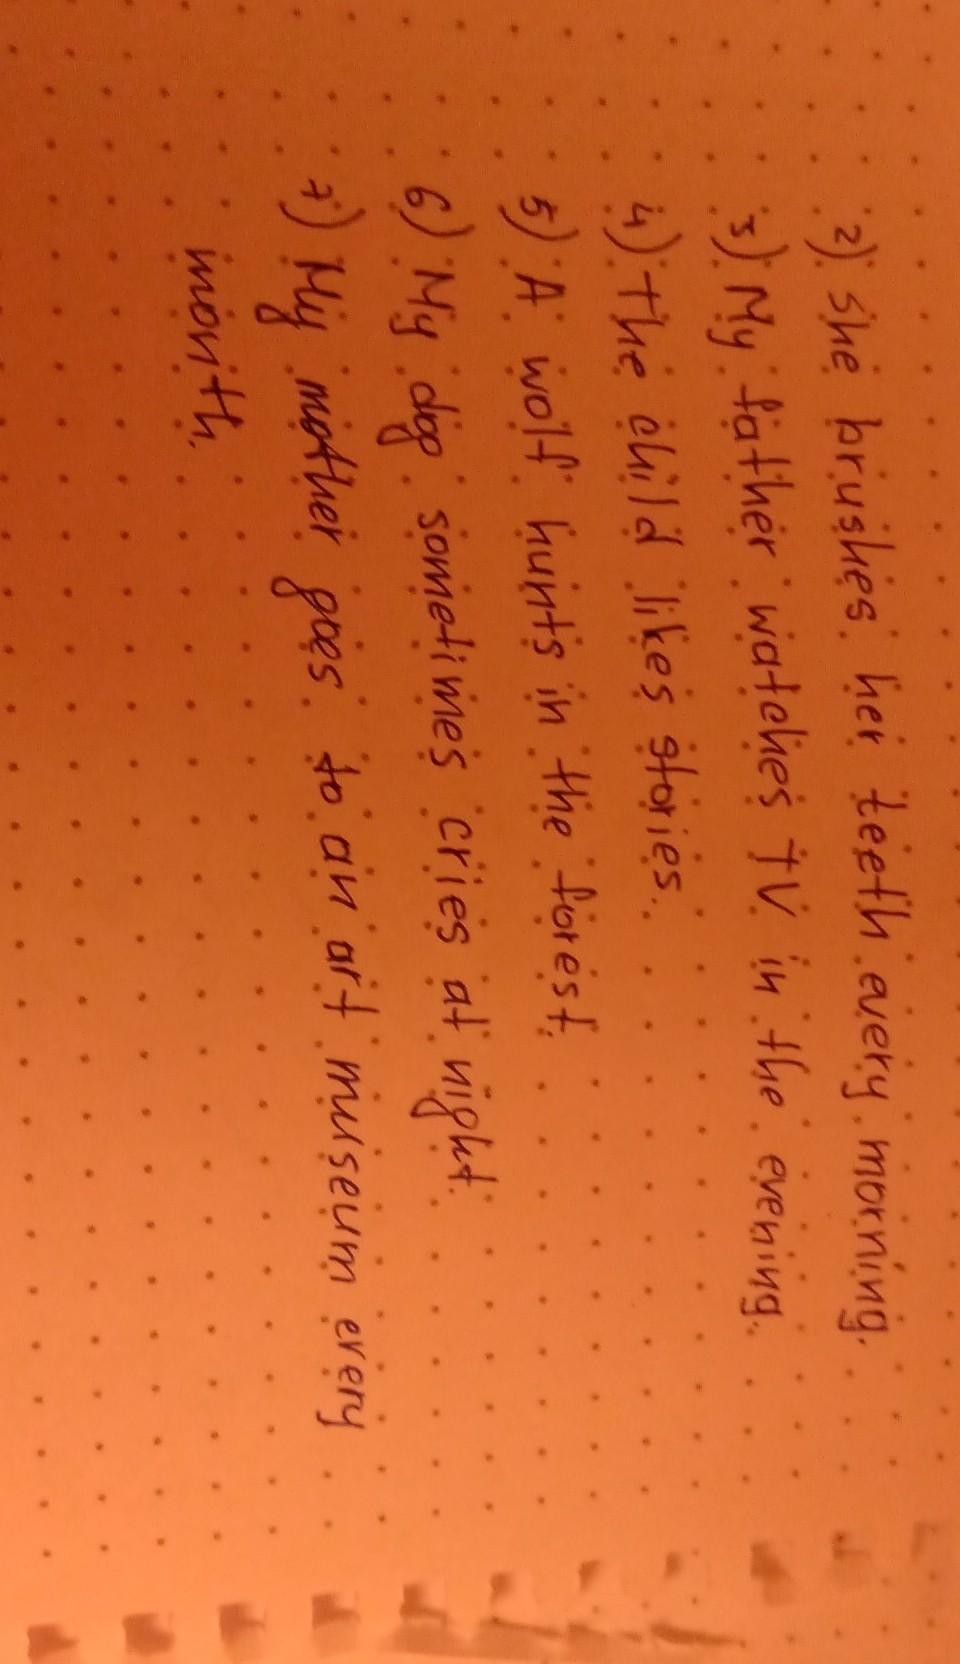 2) She brushes her teeth every morning.
3) My father watches TV in the evening.
4) The child likes stories.
5) A wolf hunts in the forest.
6) My dog sometimes cries at night.
7) My mother goes to an art museum every
month.